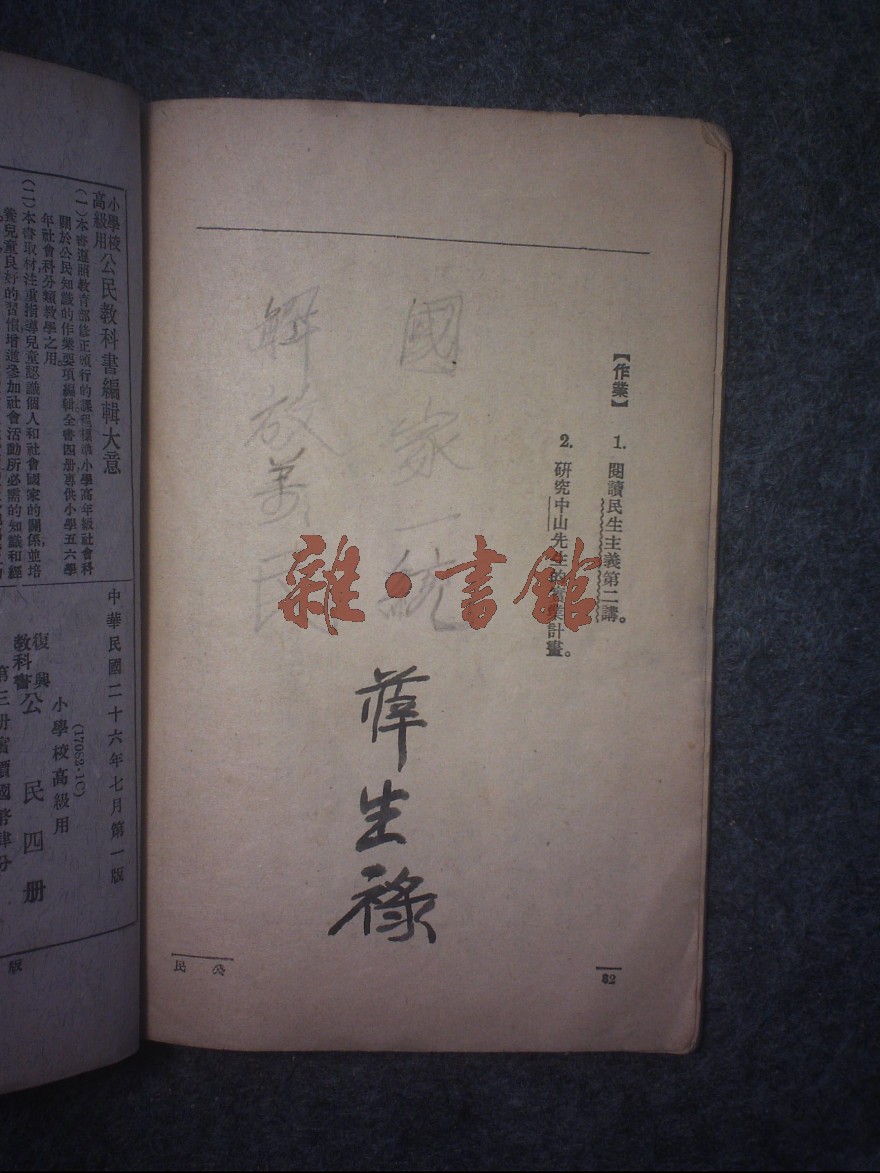 【作業】 1. 閱讀民生主義第二講。
2. 研究中山先生的實業計畫。
國家一統
解放萬民
薛生祿
雜·書館
公民
82
小學校高級用公民教科書編輯大意
(一)本書遵照教育部修正頒行的課程標準小學高年級社會科
關於公民知識的作業要項編輯全書四册專供小學五六學
年社會科分類教學之用。
(二)本書取材注重指導兒童認識個人和社會國家的關係並培
養兒童良好的習慣增進參加社會活動所必需的知識和經
中華民國二十六年七月第一版
小學校高級用
復興教科書公民四册
第三册實價國幣肆分
版